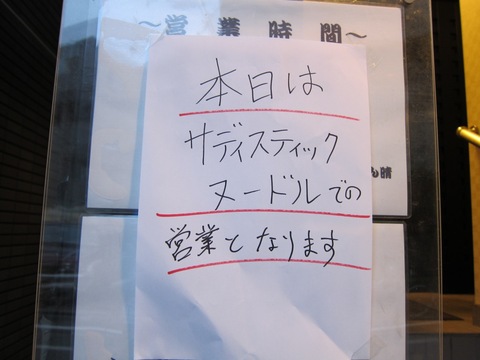 ～営業時間～
本日は
サディスティック
ヌードルでの
営業となります